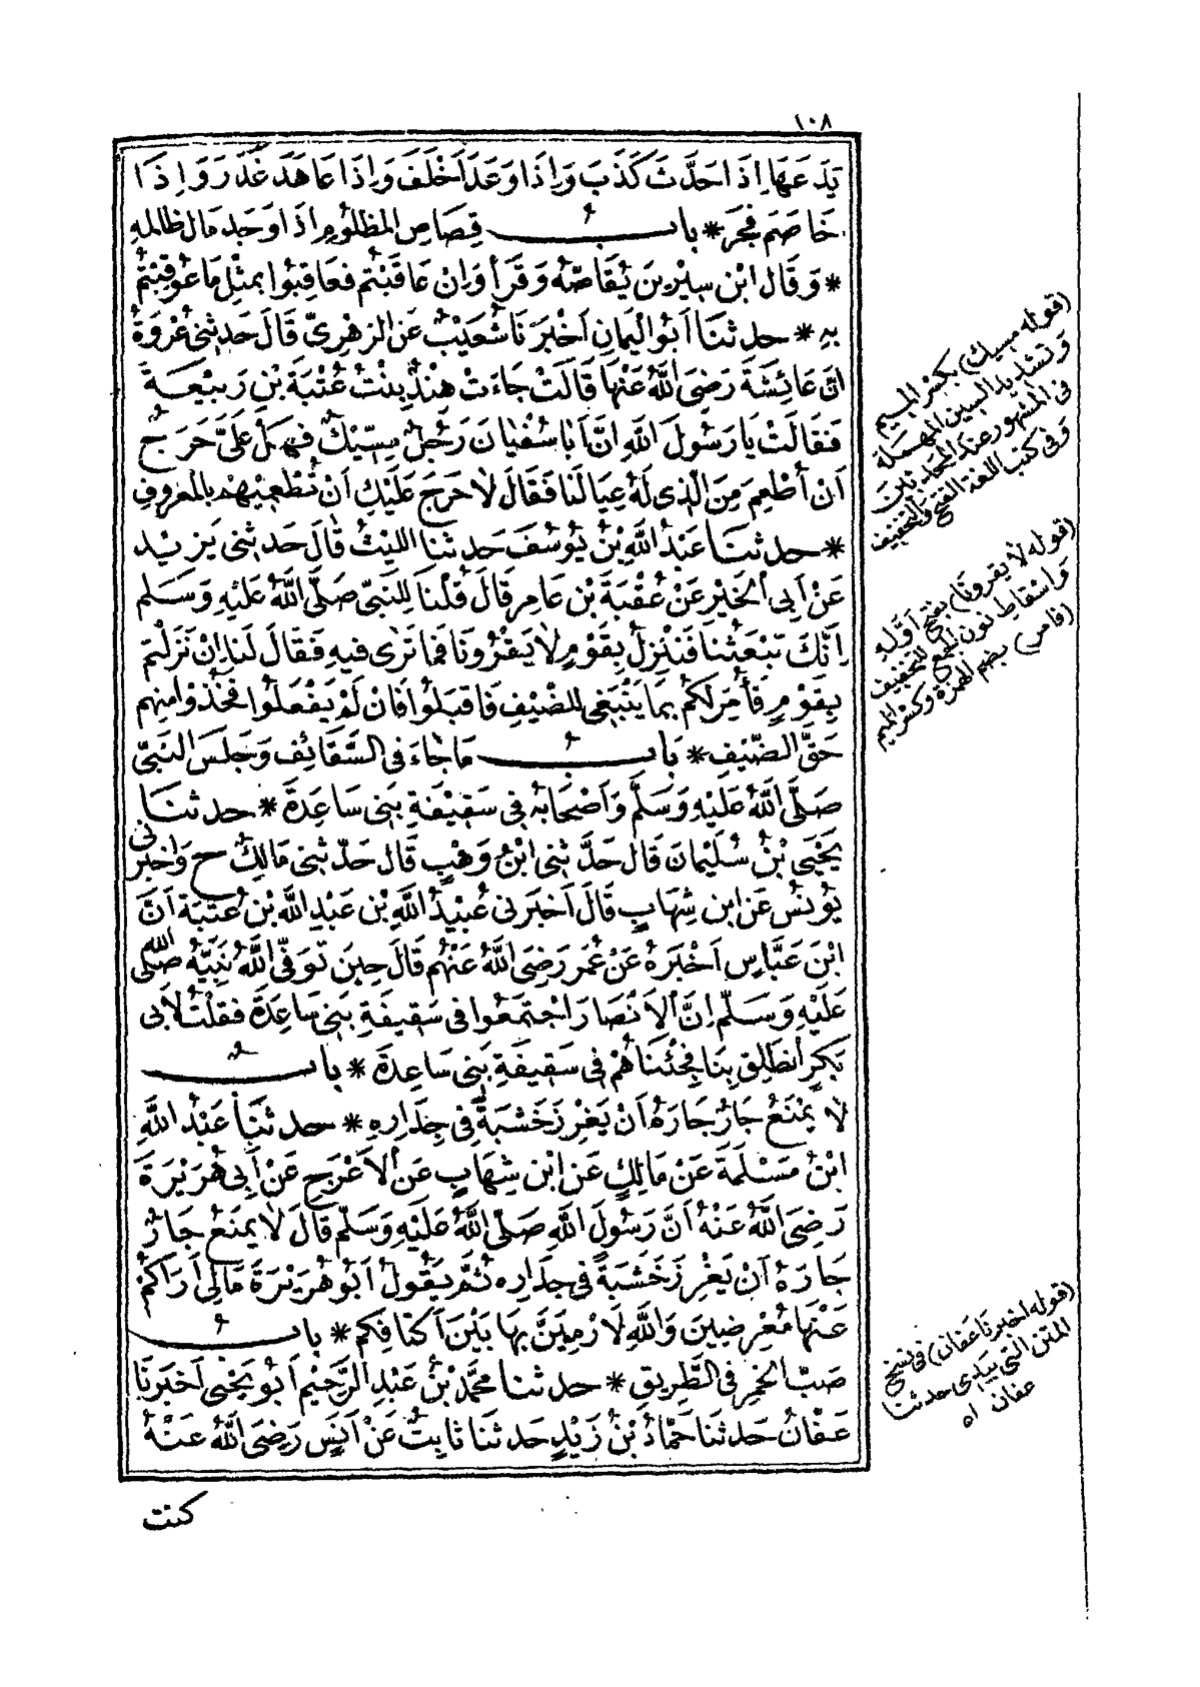 ١٠٨
يَدَعَهَا إِذَا حَدَّثَ كَذَبَ وَإِذَا وَعَدَ أَخْلَفَ وَإِذَا عَاهَدَ غَدَرَ وَإِذَا
خَاصَمَ فَجَرَ * باب قِصَاصِ المَظْلُومِ إِذَا وَجَدَ مَالَ ظَالِمِهِ
* وَقَالَ ابْنُ سِيرِينَ يُقَاصُّهُ وَقَرَأَ وَإِنْ عَاقَبْتُمْ فَعَاقِبُوا بِمِثْلِ مَا عُوقِبْتُمْ
بِهِ * حدثنا أَبُو الْيَمَانِ أَخْبَرَنَا شُعَيْبٌ عَنِ الزُّهْرِيِّ قَالَ حَدثنى عُرْوَةُ
أَنَّ عَائِشَةَ رَضِيَ اللَّهُ عَنْهَا قَالَتْ جَاءَتْ هِنْدُ بِنْتُ عُتْبَةَ بْنِ رَبِيْعَةَ
فَقَالَتْ يَا رَسُولَ اللَّهِ إِنَّ أَبَا سُفْيَانَ رَجُلٌ مِسِّيكٌ فَهَلْ عَلَيَّ حَرَجٌ
أَنْ أُطْعِمَ مِنَ الَّذِى لَهُ عِيَالَنَا فَقَالَ لَا حَرَجَ عَلَيْكِ أَنْ تُطْعِمِيْهِمْ بِالْمَعْرُوفِ
* حدثنا عَبْدُ اللَّهِ بْنُ يُوسُفَ حَدثنا اللَّيْثُ قَالَ حَدثنى يَزِيْدُ
عَنْ أَبِى الْخَيْرِ عَنْ عُقْبَةَ بْنِ عَامِرٍ قَالَ قُلْنَا لِلنَّبِيِّ صَلَّى اللَّهُ عَلَيْهِ وَسَلَّمَ
إِنَّكَ تَبْعَثُنَا فَنَنْزِلُ بِقَوْمٍ لَا يَقْرُونَا فَمَا تَرَى فِيهِ فَقَالَ لَنَا إِنْ نَزَلْتُمْ
بِقَوْمٍ فَأُمِرَ لَكُمْ بِمَا يَنْبَغِى لِلضَّيْفِ فَاقْبَلُوا فَإِنْ لَمْ يَفْعَلُوا فَخُذُوا مِنْهُمْ
حَقَّ الضَّيْفِ * باب مَا جَاءَ فِى السَّقَائِفِ وَجَلَسَ النَّبِيُّ
صَلَّى اللَّهُ عَلَيْهِ وَسَلَّمَ وَأَصْحَابُهُ فِى سَقِيْفَةِ بَنِى سَاعِدَةَ * حدثنا
يَحْيَى بْنُ سُلَيْمَانَ قَالَ حَدَّثَنِى ابْنُ وَهْبٍ قَالَ حَدَّثَنِى مَالِكٌ ح وَأَخْبَرَنِى
يُونُسُ عَنِ ابْنِ شِهَابٍ قَالَ أَخْبَرَنِى عُبَيْدُ اللَّهِ بْنُ عَبْدِ اللَّهِ بْنِ عُتْبَةَ أَنَّ
ابْنَ عَبَّاسٍ أَخْبَرَهُ عَنْ عُمَرَ رَضِيَ اللَّهُ عَنْهُمْ قَالَ حِينَ تَوَفَّى اللَّهُ نَبِيَّهُ صَلَّى اللَّهُ
عَلَيْهِ وَسَلَّمَ إِنَّ الْأَنْصَارَ اجْتَمَعُوا فِى سَقِيفَةِ بَنِى سَاعِدَةَ فَقُلْتُ لِأَبِى
بَكْرٍ انْطَلِقْ بِنَا فَجِئْنَاهُمْ فِى سَقِيفَةِ بَنِى سَاعِدَةَ * باب
لَا يَمْنَعُ جَارٌ جَارَهُ أَنْ يَغْرِزَ خَشَبَةً فِى جِدَارِهِ * حدثنا عَبْدُ اللَّهِ
ابْنُ مَسْلَمَةَ عَنْ مَالِكٍ عَنِ ابْنِ شِهَابٍ عَنِ الْأَعْرَجِ عَنْ أَبِى هُرَيْرَةَ
رَضِيَ اللَّهُ عَنْهُ أَنَّ رَسُولَ اللَّهِ صَلَّى اللَّهُ عَلَيْهِ وَسَلَّمَ قَالَ لَا يَمْنَعُ جَارٌ
جَارَهُ أَنْ يَغْرِزَ خَشَبَةً فِى جِدَارِهِ ثُمَّ يَقُولُ أَبُو هُرَيْرَةَ مَالِى أَرَاكُمْ
عَنْهَا مُعْرِضِينَ وَاللَّهِ لَأَرْمِيَنَّ بِهَا بَيْنَ أَكْتَافِكُمْ * باب
صَبِّ الْخَمْرِ فِى الطَّرِيقِ * حدثنا مُحَمَّدُ بْنُ عَبْدِ الرَّحِيمِ أَبُو يَحْيَى أَخْبَرَنَا
عَفَّانُ حَدثنَا حَمَّادُ بْنُ زَيْدٍ حَدثنَا ثَابِتٌ عَنْ أَنَسٍ رَضِيَ اللَّهُ عَنْهُ
كنت
(قوله مسيك) بكسر الميم
وتشديد السين المهملة
فى المشهور عند المحدثين
وفى كتب اللغة الفتح والتخفيف
(قوله لا يقرونا) بفتح أوله
واسقاط نون الجمع للتخفيف
(فأمر) بضم الهمزة وكسر الميم
(قوله اخبرنا عفان) فى نسخ
المتن التى بيدى حدثنا
عفان اه